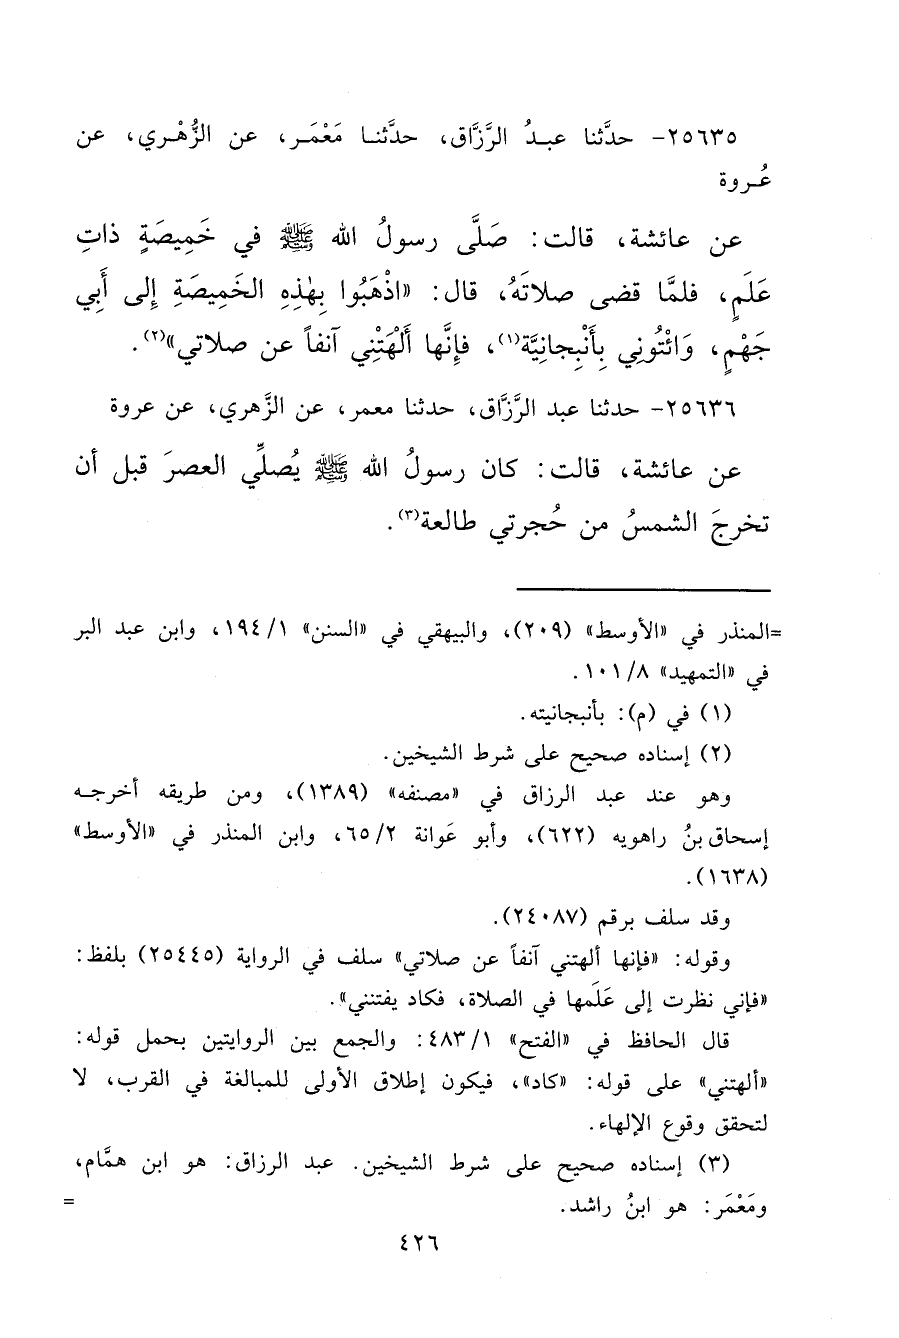 ٢٥٦٣٥- حدَّثنا عبـدُ الرَّزَّاق، حدَّثنـا مَعْمَـر، عن الزُّهْـري، عن
عُـروة
عن عائشة، قالت: صَلَّى رسولُ الله ﷺ في خَمِيصَةٍ ذاتِ
عَلَمٍ، فلمَّا قضى صلاتَهُ، قال: «اذْهَبُوا بِهٰذِهِ الخَمِيصَةِ إِلى أَبِي
جَهْمٍ، وَائْتُونِي بِأَنْبِجانِيَّة(١)، فإِنَّها أَلْهَتْنِي آنفاً عن صلاتي»(٢).
٢٥٦٣٦- حدثنا عبد الرَّزَّاق، حدثنا معمر، عن الزَّهري، عن عروة
عن عائشة، قالت: كان رسولُ الله ﷺ يُصلِّي العصرَ قبل أن
تخرجَ الشمسُ من حُجرتي طالعة(٣).
=المنذر في «الأوسط» (٢٠٩)، والبيهقي في «السنن» ١٩٤/١، وابن عبد البر
في «التمهيد» ١٠١/٨.
(١) في (م): بأنبجانيته.
(٢) إسناده صحيح على شرط الشيخين.
وهو عند عبد الرزاق في «مصنفه» (١٣٨٩)، ومن طريقه أخرجـه
إسحاق بنُ راهويه (٦٢٢)، وأبو عَوانة ٦٥/٢، وابن المنذر في «الأوسط»
(١٦٣٨).
وقد سلف برقم (٢٤٠٨٧).
وقوله: «فإنها ألهتني آنفاً عن صلاتي» سلف في الرواية (٢٥٤٤٥) بلفظ:
«فإني نظرت إلى عَلَمها في الصلاة، فكاد يفتنني».
قال الحافظ في «الفتح» ٤٨٣/١: والجمع بين الروايتين بحمل قوله:
«ألهتني» على قوله: «كاد»، فيكون إطلاق الأولى للمبالغة في القرب، لا
لتحقق وقوع الإلهاء.
(٣) إسناده صحيح على شرط الشيخين. عبد الرزاق: هو ابن همَّام،
ومَعْمَر: هو ابنُ راشد. =
٤٢٦